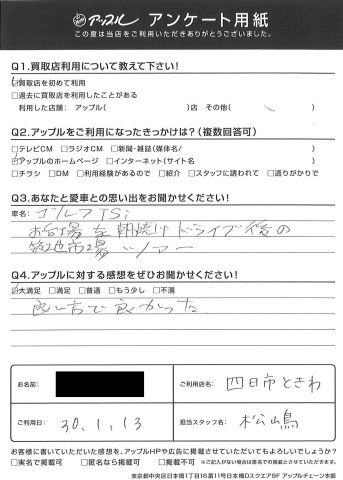 アップル アンケート用紙
この度は当店をご利用いただきありがとうございました。
Q1.買取店利用について教えて下さい!
☑買取店を初めて利用
□過去に買取店を利用したことがある
利用した店舗: アップル( )店 その他( )
Q2.アップルをご利用になったきっかけは?(複数回答可)
□テレビCM □ラジオCM □新聞・雑誌(媒体名/ )
☑アップルのホームページ □インターネット(サイト名 )
□チラシ □DM □利用経験があるので □紹介 □スタッフに誘われて □通りがかりで
Q3.あなたと愛車との思い出をお聞かせください!
車名: ゴルフTSi
お台場を朝焼けドライブ後の
築地市場ツアー
Q4.アップルに対する感想をぜひお聞かせください!
☑大満足 □満足 □普通 □もう少し □不満
良い方で良かった
お名前:
ご利用店名: 四日市ときわ
ご利用日: 30,1,13
担当スタッフ名: 松嶋
お客様に書いていただいた感想を、アップルHPや広告に掲載させていただいてもよろしいでしょうか?
□実名で掲載可 □匿名なら掲載可 □掲載不可 ※ご記入がない場合は匿名での掲載とさせていただきます。
東京都中央区日本橋1丁目16番11号日本橋Dスクエア9F アップルチェーン本部